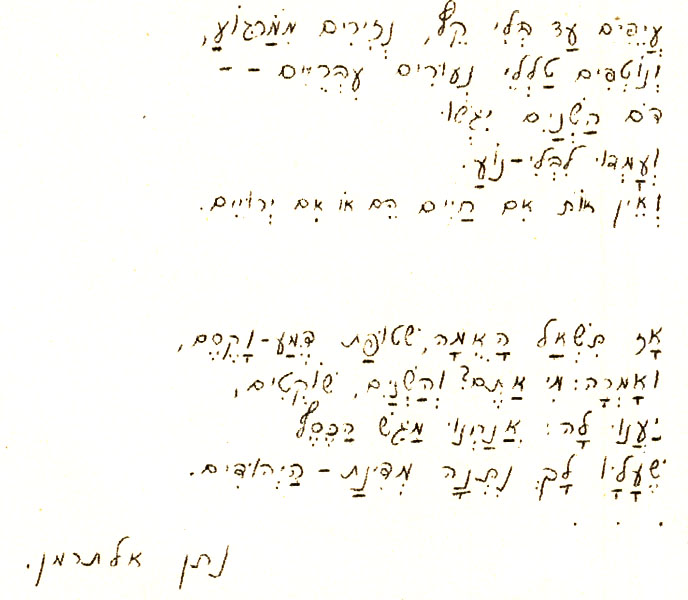 עֲיֵפִים עַד בְּלִי קֵץ, נְזִירִים מִמַּרְגּוֹעַ,
וְנוֹטְפִים טַלְלֵי נְעוּרִים עִבְרִיִּים - -
דֹּם הַשְּׁנַיִם יִגְּשׁוּ
וְעָמְדוּ לִבְלִי-נוֹעַ.
וְאֵין אוֹת אִם חַיִּים הֵם אוֹ אִם יְרוּיִים.
אָז תִּשְׁאַל הָאֻמָּה, שְׁטוּפַת דֶּמַע-וָקֶסֶם,
וְאָמְרָה: מִי אַתֶּם? וְהַשְּׁנַיִם, שׁוֹקְטִים,
יַעֲנוּ לָהּ: אֲנַחְנוּ מַגַּשׁ הַכֶּסֶף
שֶׁעָלָיו לָךְ נִתְּנָה מְדִינַת - הַיְּהוּדִים.
. . .
נתן אלתרמן.